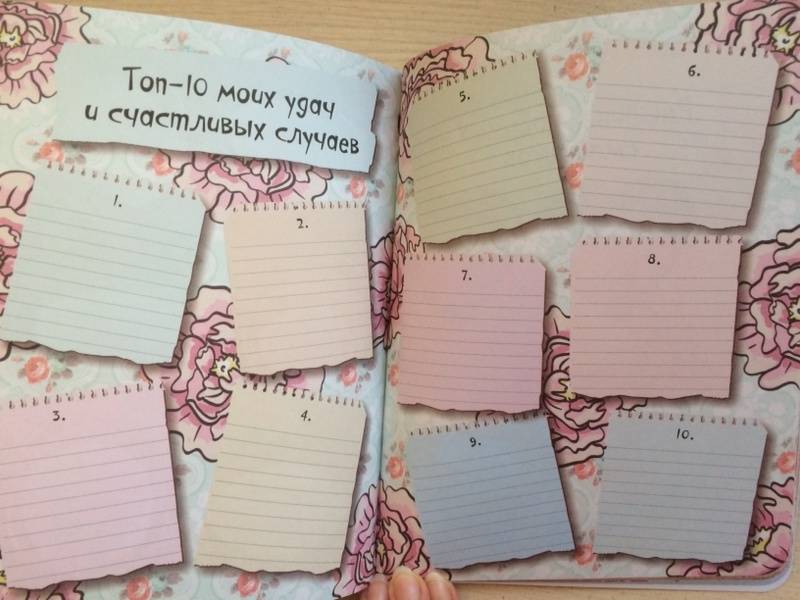 Топ-10 моих удач
и счастливых случаев
1.
2.
3.
4.
5.
6.
7.
8.
9.
10.